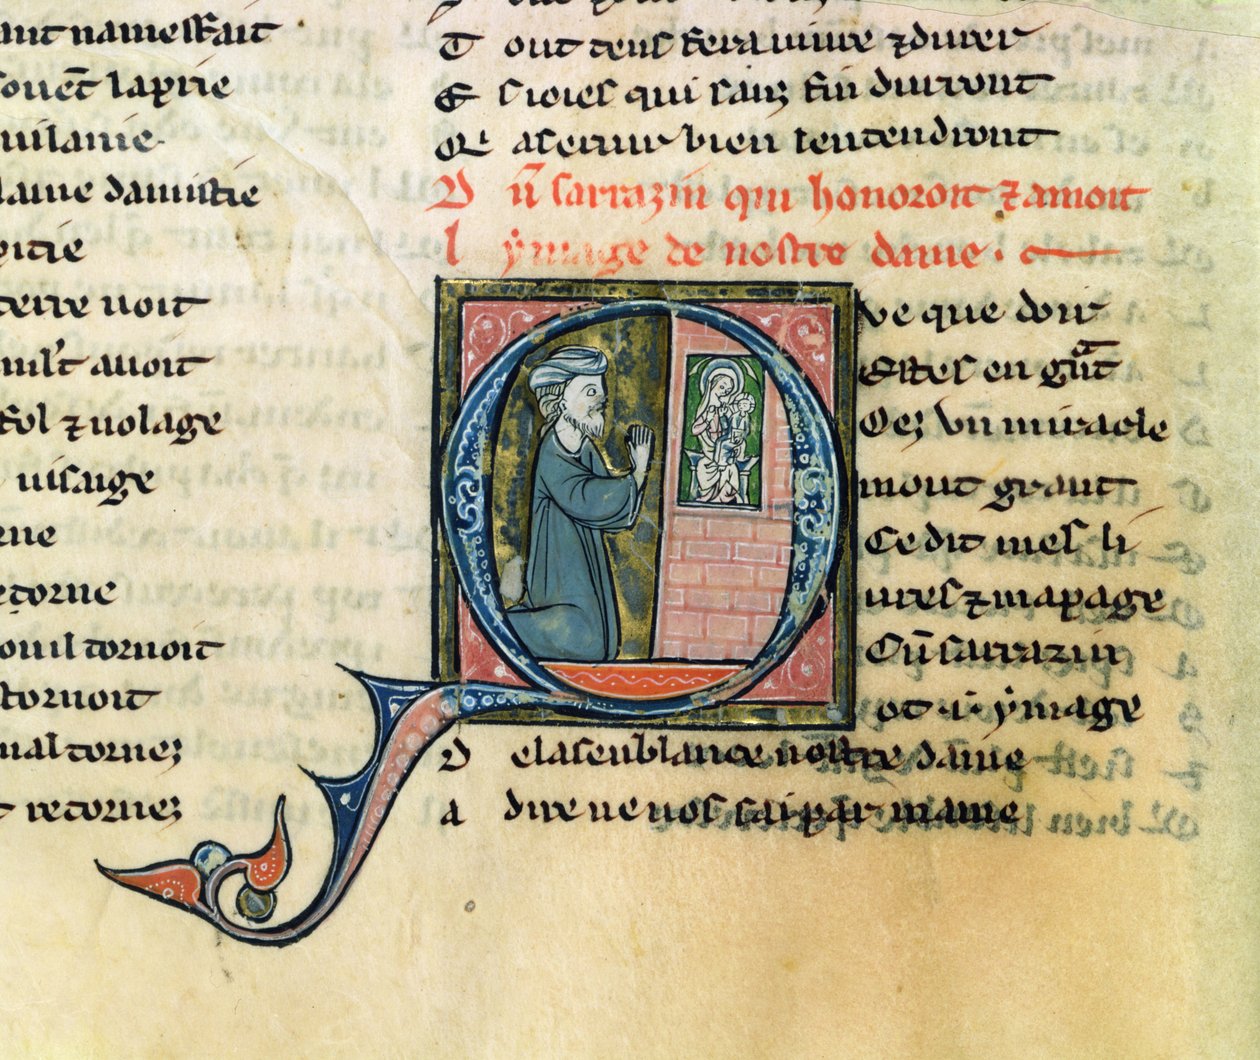 ant namesfait
souēt laprie
uilanie.
damistie
pitie
terre uoit
auoit
fol ⁊ uolage
uisage
ene
retorne
ouil tornoit
stornoit
mal tornez
t retornez
T out tens fera uiure ⁊ durer
E s ioies qui sanz fin durront
Q aseruir bien tentendront
D ũ sarrazin qui honoroit ⁊ amoit
l ymage de nostre dame.
Q ve que doir
Estes en gñt
Oez vn miracle
mout grant
Ce dit mes li
ures ⁊ ma page
Cũ sarrazin
ot .i. ymage
D elasenblance nostre dame
a dire ne uos sai par mame